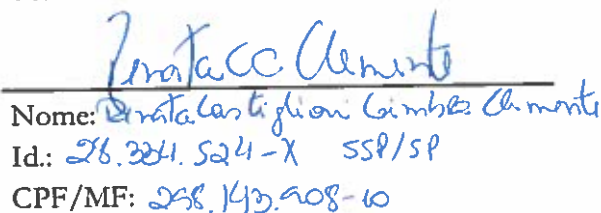 Renata CC Clemente
Nome: Renata Castiglioni Coimbra Clemente
Id.: 28.334.524-X SSP/SP
CPF/MF: 298.143.908-10